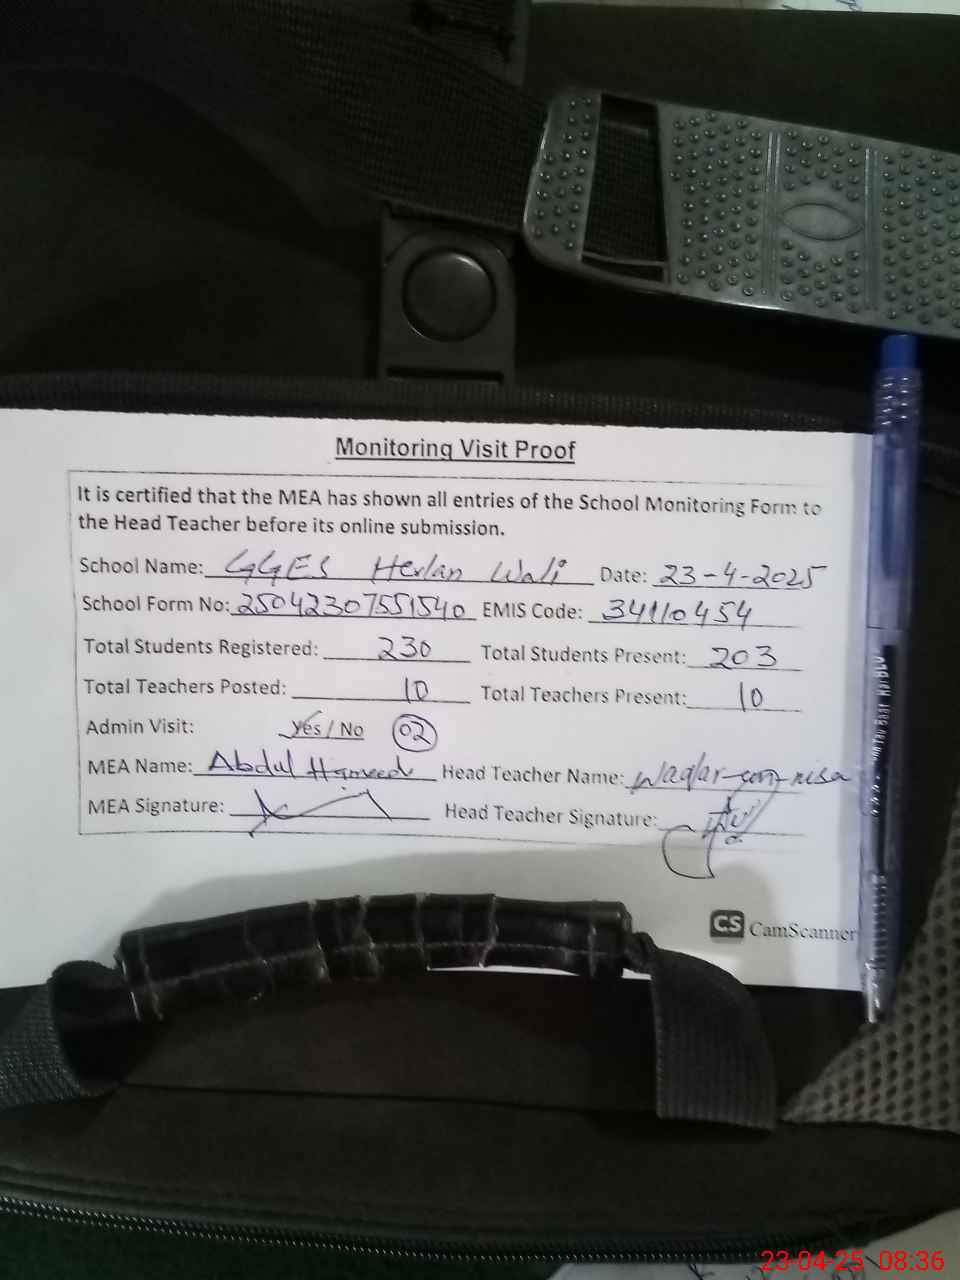 Monitoring Visit Proof
It is certified that the MEA has shown all entries of the School Monitoring Form to
the Head Teacher before its online submission.
School Name: GGES Herlan Wali Date: 23-4-2025
School Form No: 25042307551540 EMIS Code: 34110454
Total Students Registered: 230 Total Students Present: 203
Total Teachers Posted: 10 Total Teachers Present: 10
Admin Visit: Yes / No 02
MEA Name: Abdul Hameed Head Teacher Name: Waqar-un-nisa
MEA Signature: Head Teacher Signature:
CS CamScanner
23-04-25 08:36